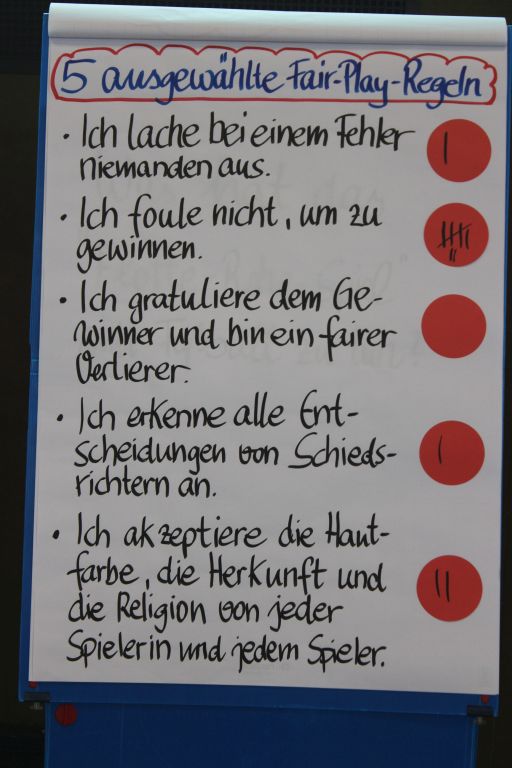 5 ausgewählte Fair-Play-Regeln
· Ich lache bei einem Fehler
niemanden aus.
· Ich foule nicht, um zu
gewinnen.
· Ich gratuliere dem Ge-
winner und bin ein fairer
Verlierer.
· Ich erkenne alle Ent-
scheidungen von Schieds-
richtern an.
· Ich akzeptiere die Haut-
farbe, die Herkunft und
die Religion von jeder
Spielerin und jedem Spieler.